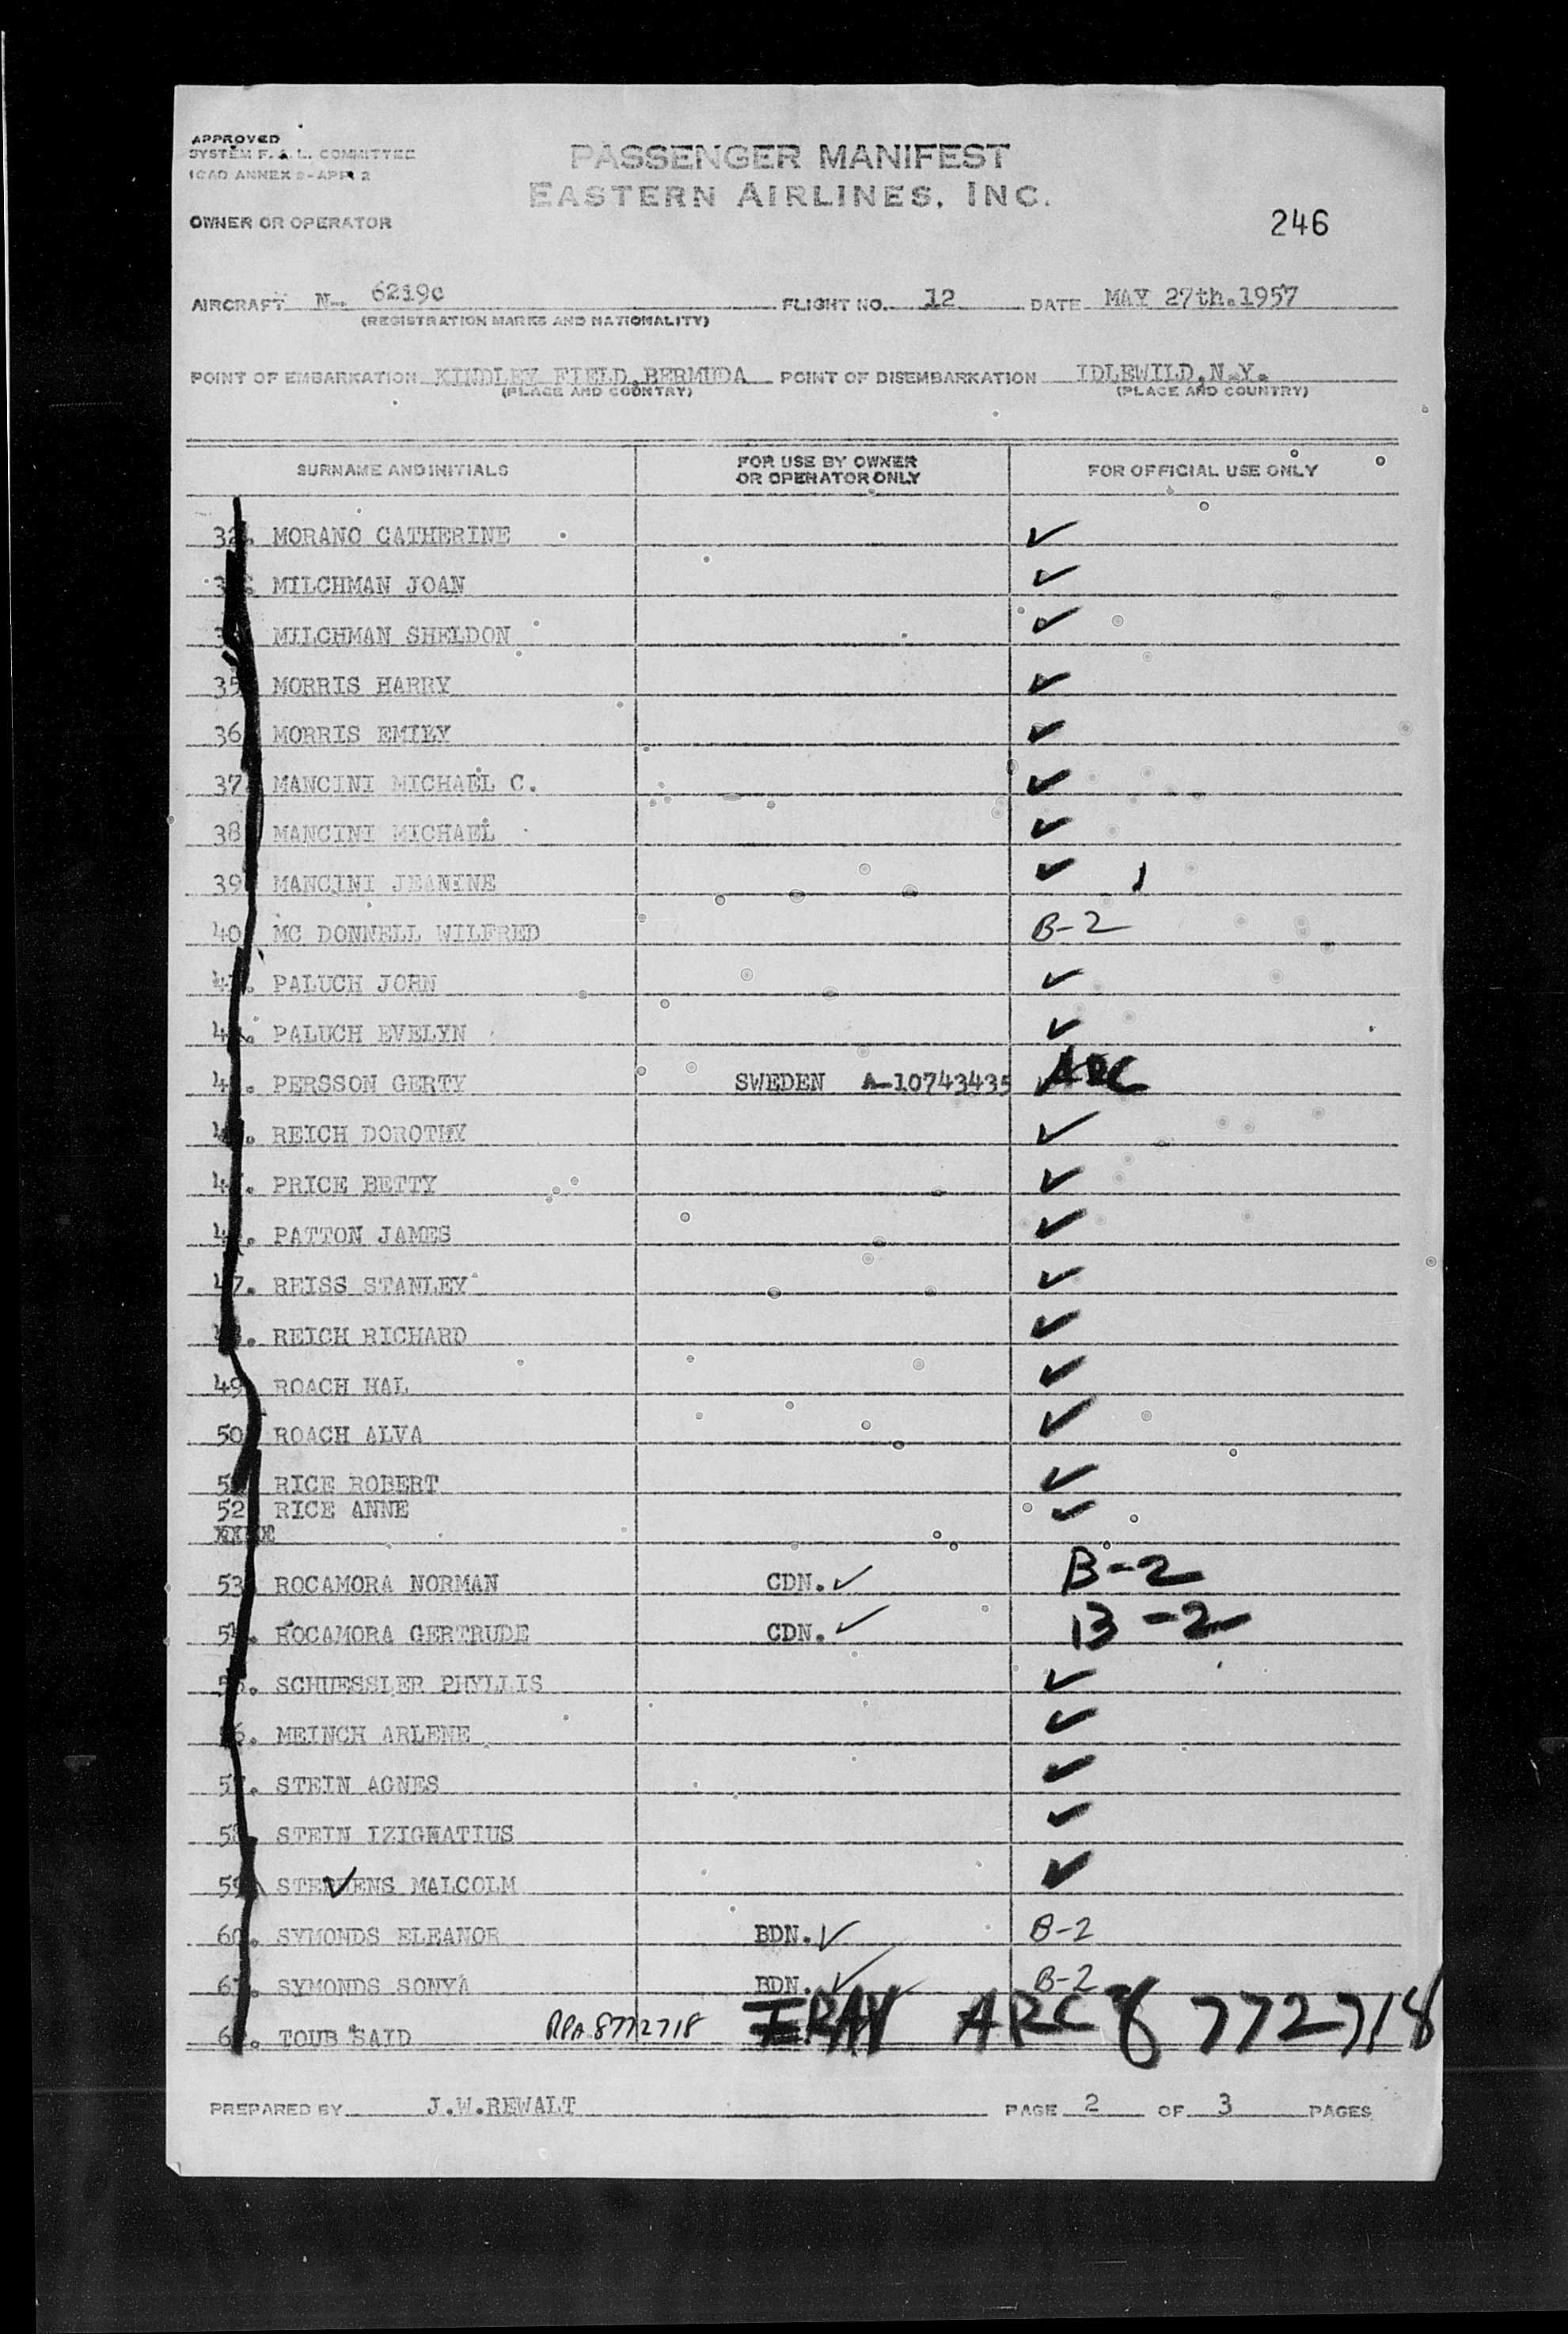 APPROVED
SYSTEM F.A.L. COMMITTEE
ICAO ANNEX 9-APP. 2
PASSENGER MANIFEST
EASTERN AIRLINES, INC.
OWNER OR OPERATOR
246
AIRCRAFT N- 6219c FLIGHT NO. 12 DATE MAY 27th.1957
(REGISTRATION MARKS AND NATIONALITY)
POINT OF EMBARKATION KINDLEY FIELD,BERMUDA POINT OF DISEMBARKATION IDLEWILD,N.Y.
(PLACE AND COUNTRY) (PLACE AND COUNTRY)
SURNAME AND INITIALS FOR USE BY OWNER OR OPERATOR ONLY FOR OFFICIAL USE ONLY
32. MORANO CATHERINE ✓
MILCHMAN JOAN ✓
MILCHMAN SHELDON ✓
35 MORRIS HARRY ✓
36 MORRIS EMILY ✓
37 MANCINI MICHAEL C. ✓
38 MANCINI MICHAEL ✓
39 MANCINI JEANINE ✓
40 MC DONNELL WILFRED B-2
PALUCH JOHN ✓
PALUCH EVELYN ✓
PERSSON GERTY SWEDEN A-10743435 ARC
REICH DOROTHY ✓
PRICE BETTY ✓
PATTON JAMES ✓
47. REISS STANLEY ✓
REICH RICHARD ✓
49 ROACH HAL ✓
50 ROACH ALVA ✓
RICE ROBERT ✓
52 RICE ANNE ✓
53 ROCAMORA NORMAN CDN. ✓ B-2
54. ROCAMORA GERTRUDE CDN. ✓ B-2
55. SCHUESSLER PHYLLIS ✓
56. MEINCH ARLENE ✓
57. STEIN AGNES ✓
58. STEIN IZIGNATIUS ✓
59 STEPHENS MALCOLM ✓
60. SYMONDS ELEANOR BDN. ✓ B-2
61. SYMONDS SONYA BDN. ✓ B-2
62. TOUB SAID RPA 8772718 IRAN ARC 8 772718
PREPARED BY J.W.REWALT PAGE 2 OF 3 PAGES